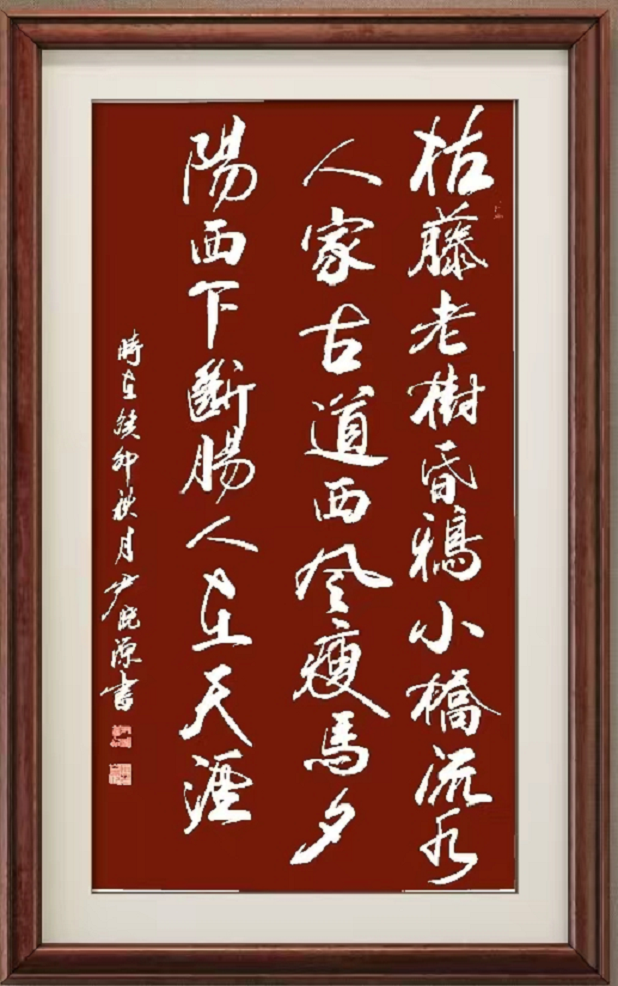 枯藤老樹昏鴉小橋流水
人家古道西風瘦馬夕
陽西下斷腸人在天涯
時在癸卯秋月尹曉源書